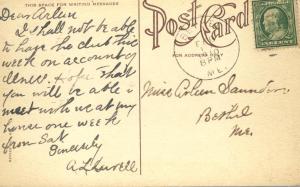 THIS SPACE FOR WRITING MESSAGES
Post Card
FOR ADDRESS
Dear Arleen
I shall not be able
to have the club this
week on account of
illness. Hope that
you will be able to
meet with me at my
home one week
from Sat
Sincerely
8 PM
ME.
Miss Arleen Saunders
Bethel
Me.